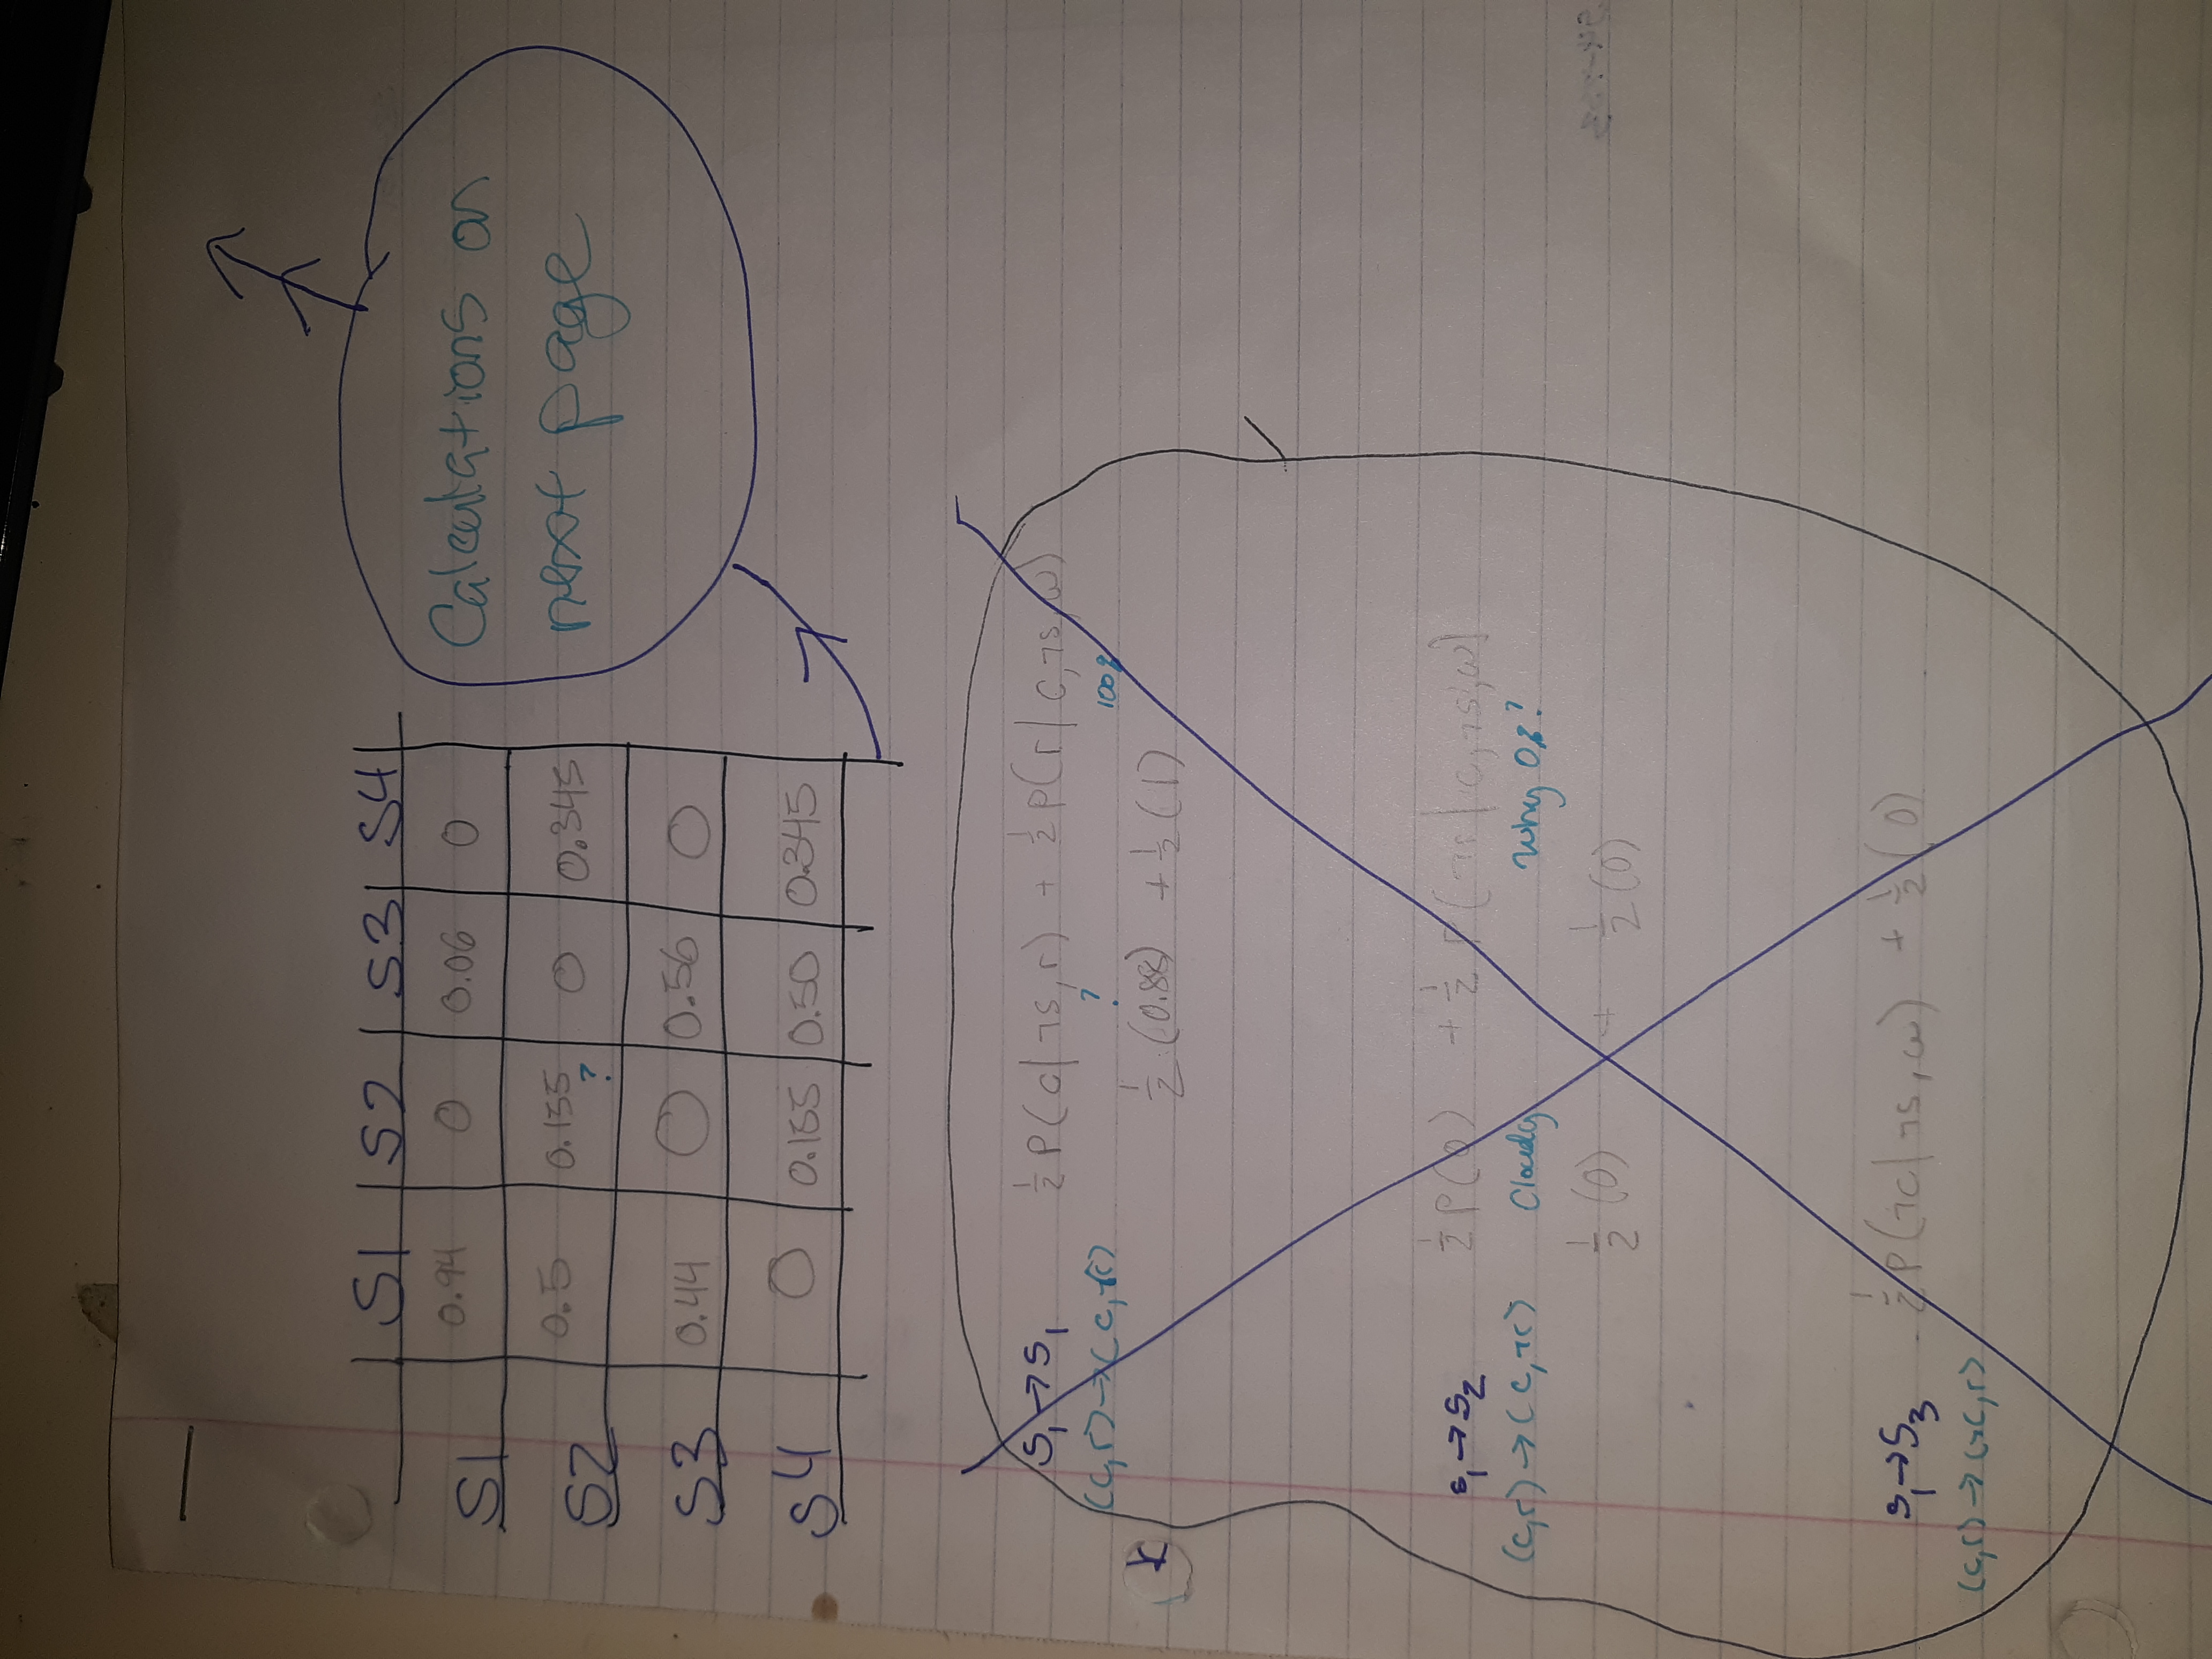 S1 S2 S3 S4
S1 0.94 0 0.06 0
S2 0.5 0.155 ? 0 0.345
S3 0.44 0 0.56 0
S4 0 0.155 0.50 0.345
Calculations on
next page
S₁ → S₁ ½ P(c|¬s,r) + ½ P(r|c,¬s,w)
(c,r) → (c,r) ? 100%
½ (0.88) + ½ (1)
S₁ → S₂ ½ P(0) + ½ P(¬r|c,¬s,w)
(c,r) → (c,¬r) Cloudy Why 0%?
½ (0) + ½ (0)
S₁ → S₃ ½ P(¬c|¬s,w) + ½ (0)
(c,r) → (¬c,r)